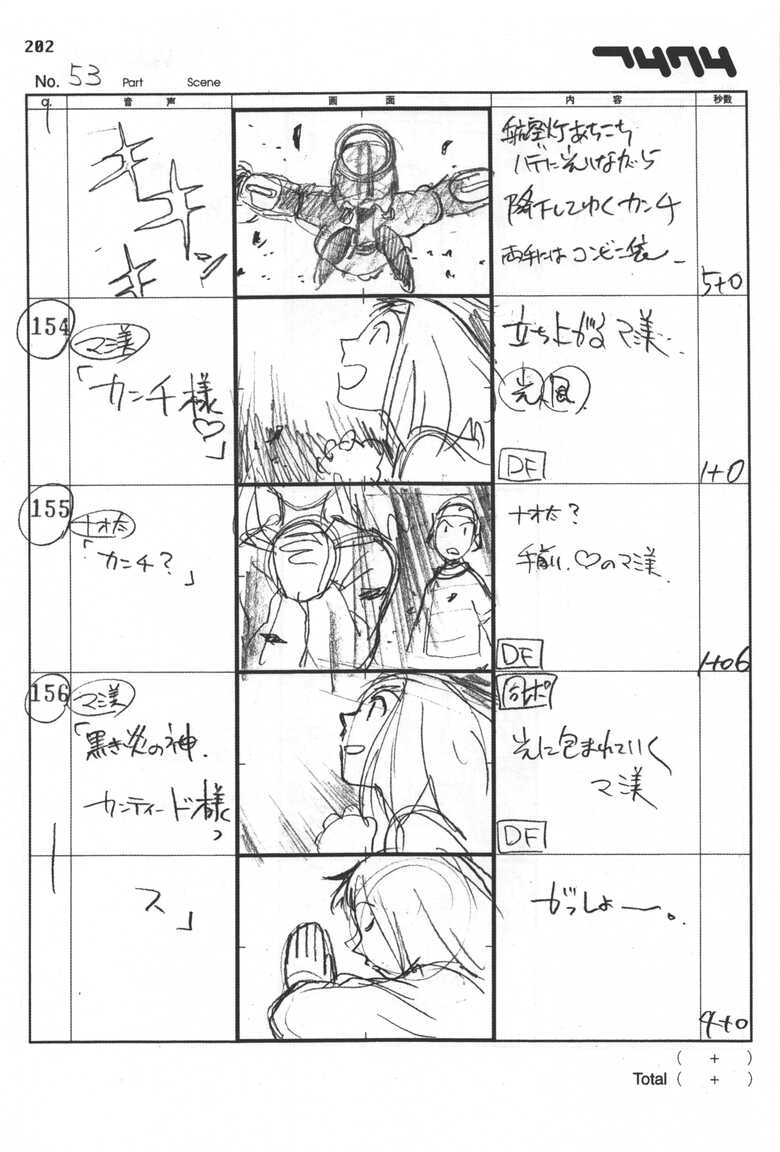 202
フリクリ
No. 53 Part Scene
C. 音声 画面 内容 秒数
航空灯あちこち
ハデに光りながら
降下してゆくカンチ
両手にはコンビニ袋
5+0
154
マミ美
「カンチ様♡」
立ち上がるマミ美.
光 風
DF
1+0
155
ナオ太
「カンチ?」
ナオ太?
手前に、♡のマミ美.
DF
1+06
156
マミ美
「黒き炎の神.
カンティード様っ
同ポ
光に包まれていく
マミ美
DF
ス」
がっしょー。
4+0
( + )
Total ( + )